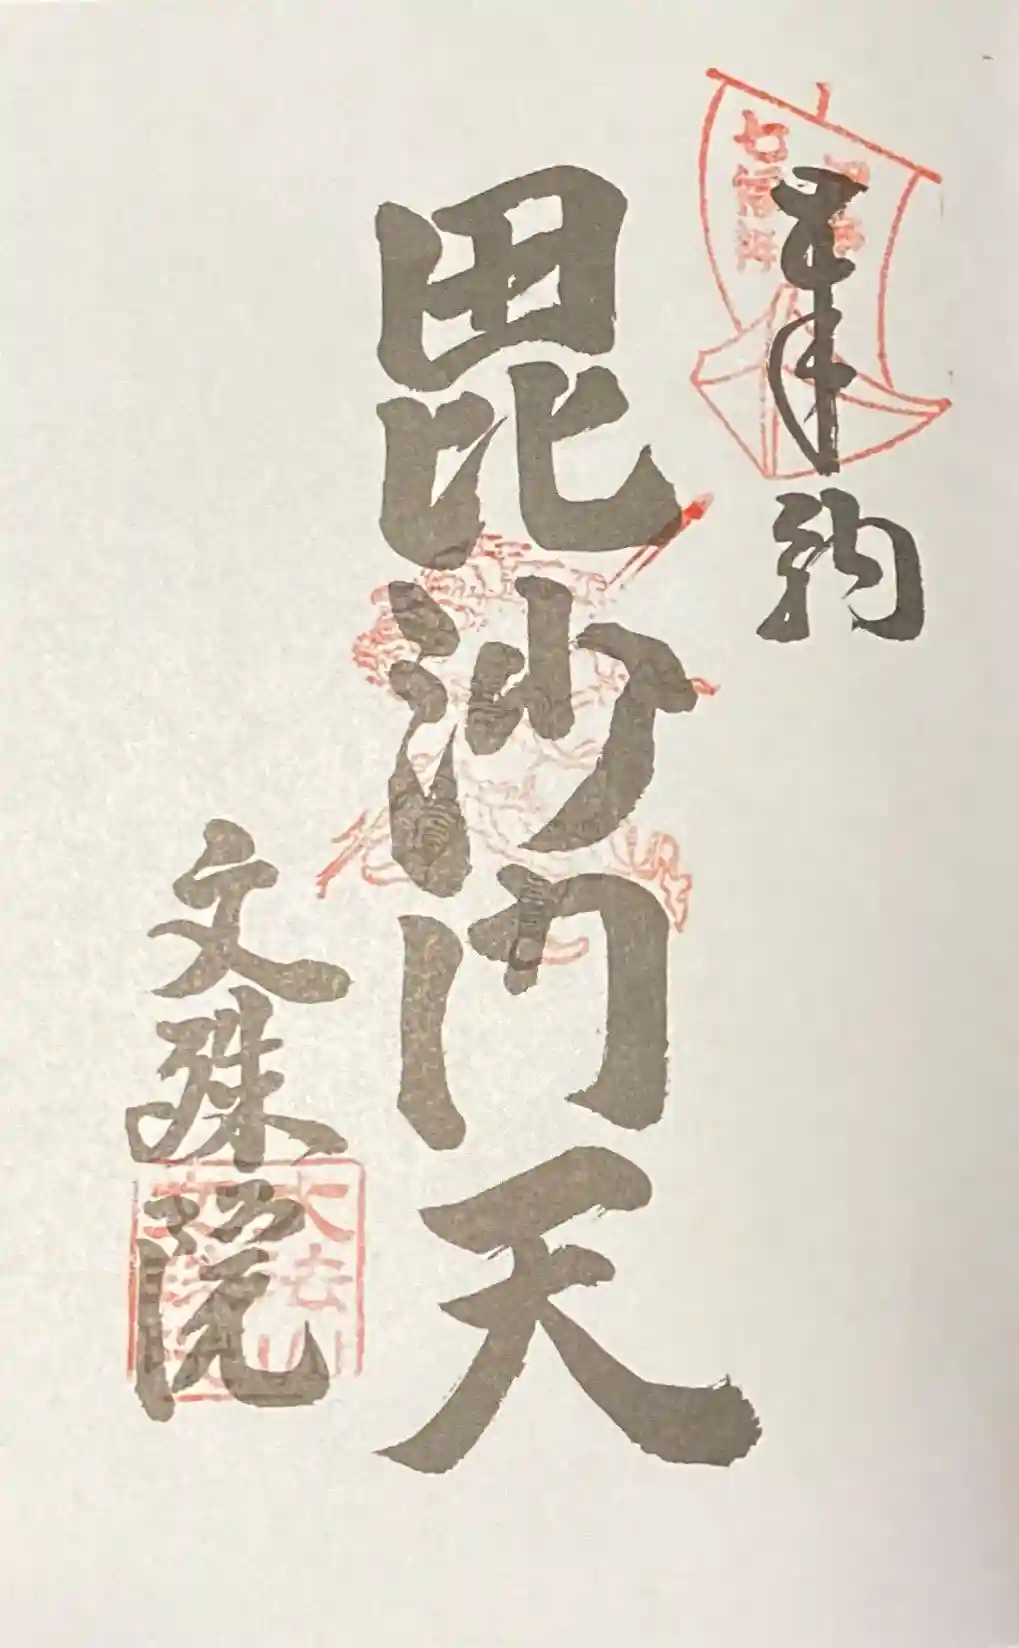 奉納
七福神
毘沙門天
文殊院
大法山